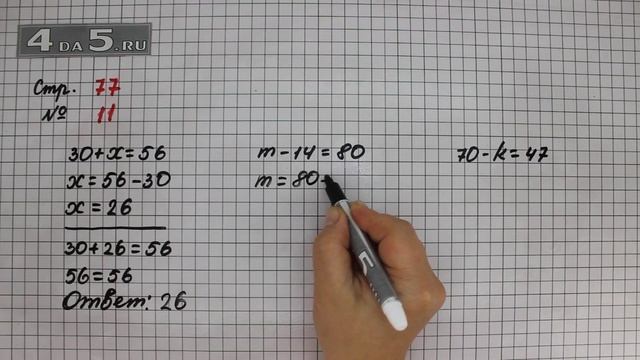 4 DA 5.RU
Стр. 77
№ 11
30+x=56
x=56-30
x=26
30+26=56
56=56
Ответ: 26
m-14=80
m=80
70-k=47